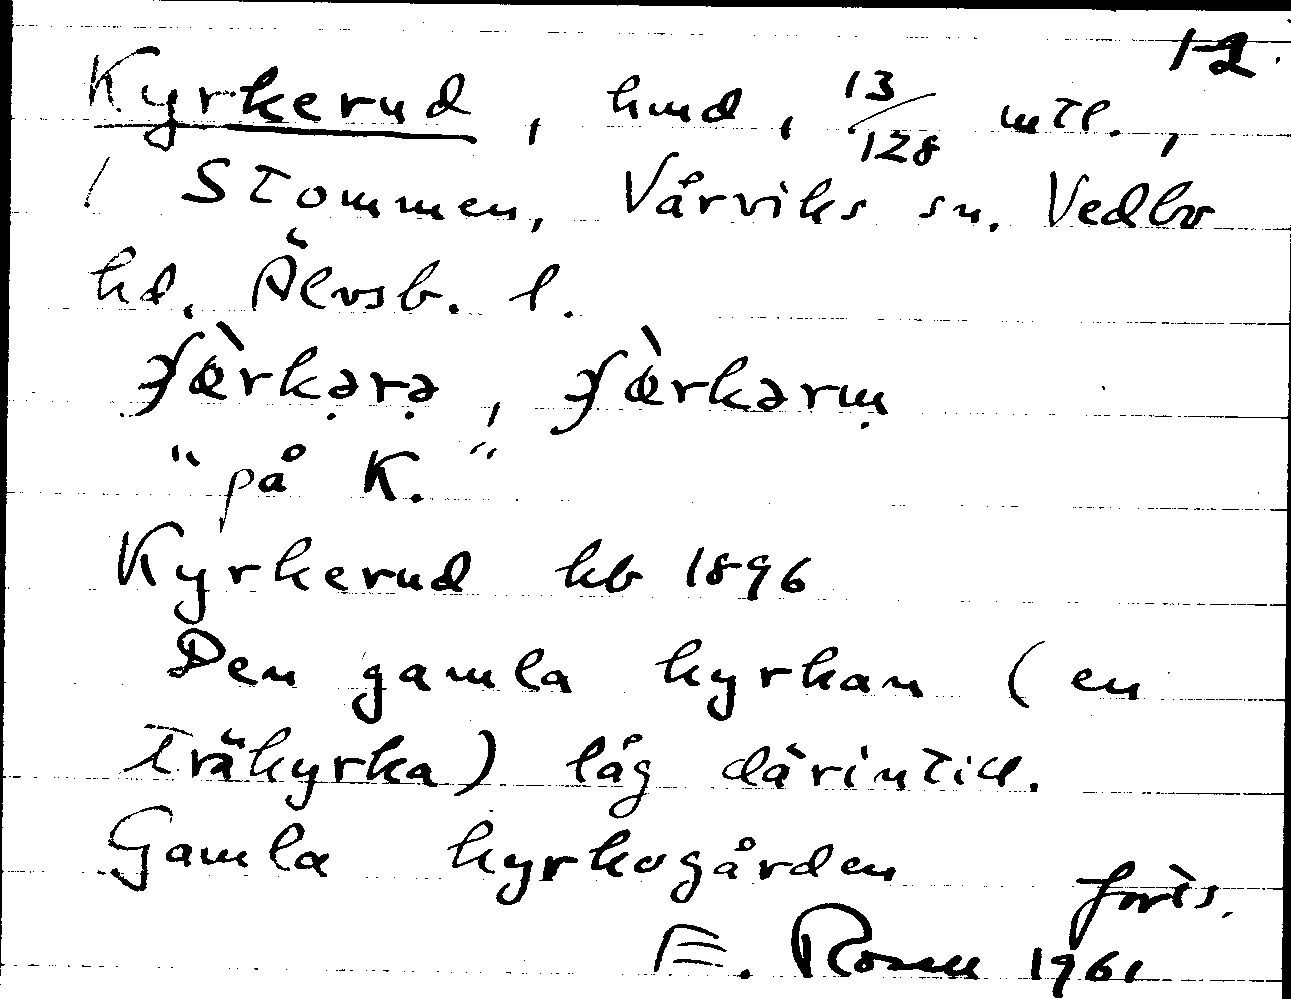 1-2.
Kyrkerud, hmd, 13/128 mtl.,
/ Stommen, Vårviks sn. Vedbo
hd. Älvsb. l.
"på K."
Kyrkerud kb 1896
Den gamla kyrkan (en
träkyrka) låg därintill.
Gamla kyrkogården
forts.
E. Rosell 1961